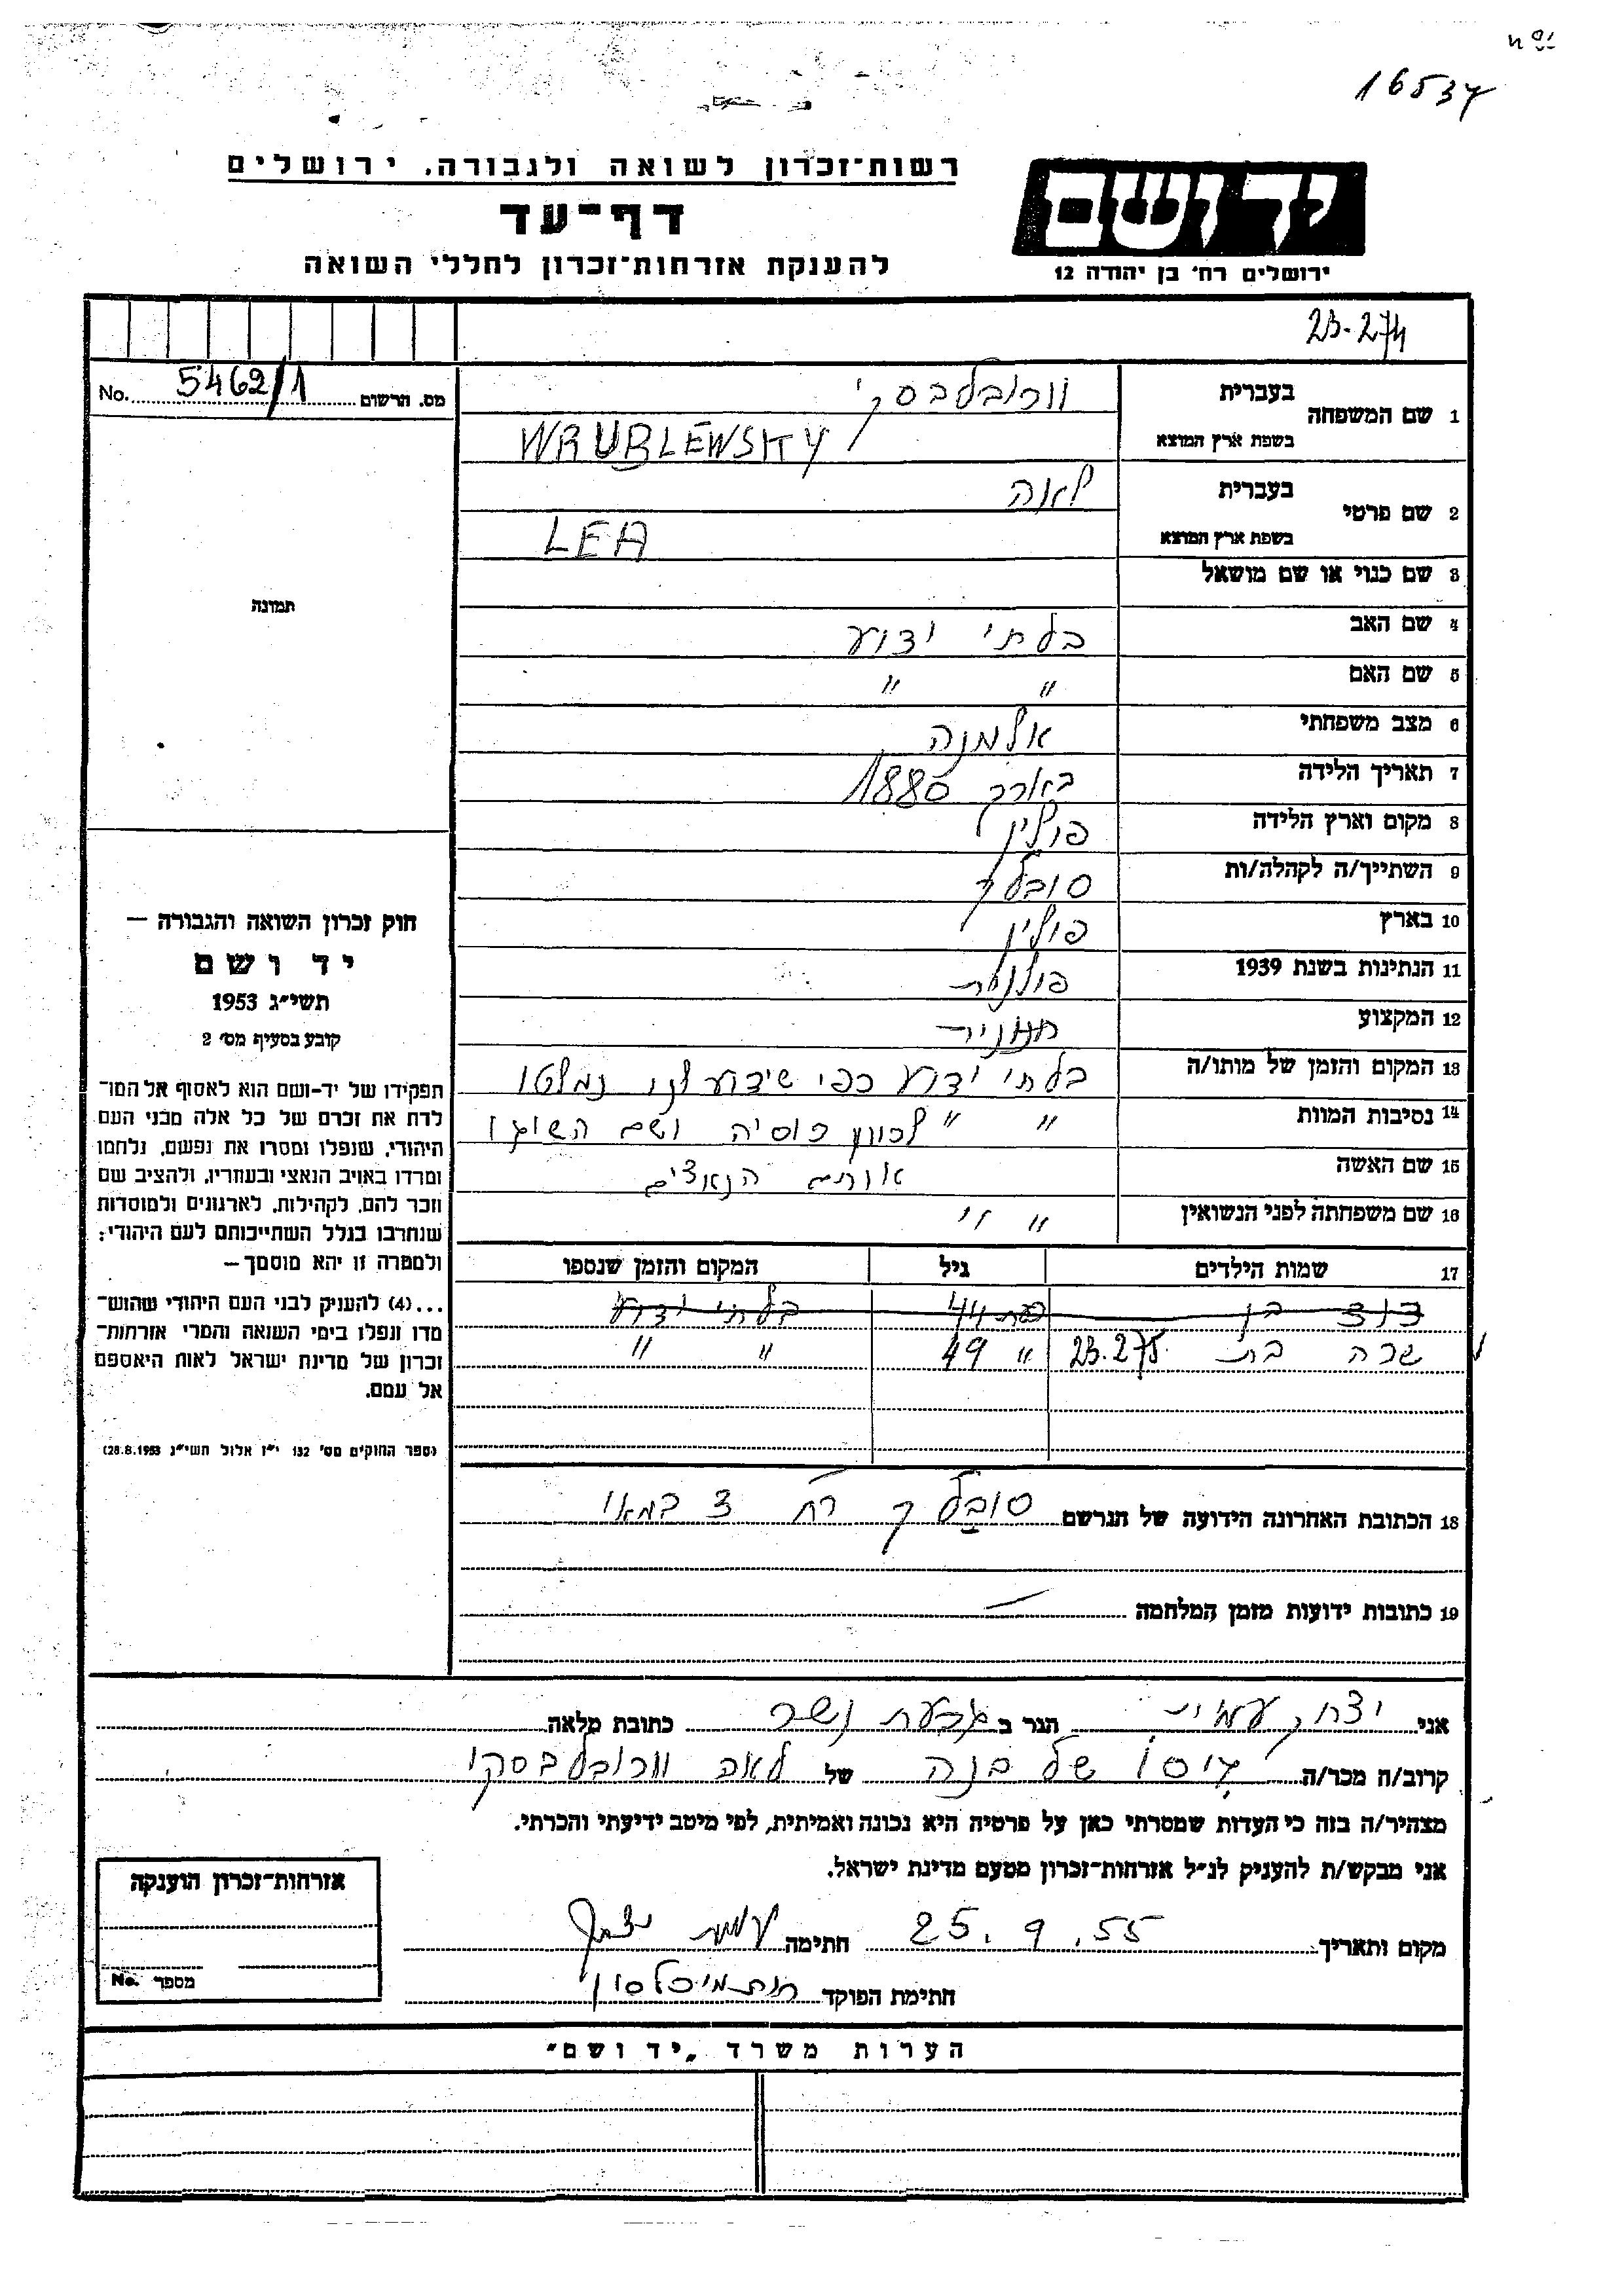 16537
רשות־זכרון לשואה ולגבורה, ירושלים
יד ושם
דף־עד
להענקת אזרחות־זכרון לחללי השואה
ירושלים רח׳ בן יהודה 12
23-274
מס. הרשום 5462/1 No.
1 שם המשפחה בעברית וורובלבסקי
בשפת ארץ המוצא WRUBLEWSKY
2 שם פרטי בעברית לאה
בשפת ארץ המוצא LEA
תמונה
3 שם כנוי או שם מושאל
4 שם האב בלתי ידוע
5 שם האם " "
6 מצב משפחתי אלמנה
7 תאריך הלידה בערך 1880
8 מקום וארץ הלידה פולין
9 השתייך/ה לקהלה/ות סובלק
10 בארץ פולין
11 הנתינות בשנת 1939 פולנית
12 המקצוע
13 המקום והזמן של מותו/ה בלתי ידוע כפי שידוע לנו נמלטו
14 נסיבות המוות " " לכוון רוסיה ושם השיגו
15 שם האשה אותם הנאצים
16 שם משפחתה לפני הנשואין " "
חוק זכרון השואה והגבורה —
יד ושם
תשי״ג 1953
קובע בסעיף מס׳ 2
תפקידו של יד־ושם הוא לאסוף אל המו־
לדת את זכרם של כל אלה מבני העם
היהודי, שנפלו ומסרו את נפשם, נלחמו
ומרדו באויב הנאצי ובעוזריו, ולהציב שם
וזכר להם, לקהילות, לארגונים ולמוסדות
שנחרבו בגלל השתייכותם לעם היהודי;
ולמטרה זו יהא מוסמך —
...(4) להעניק לבני העם היהודי שהוש־
מדו ונפלו בימי השואה והמרי אזרחות־
זכרון של מדינת ישראל לאות היאספם
אל עמם.
(ספר החוקים מס׳ 132 י״ז אלול תשי״ג 28.8.1953)
17 שמות הילדים גיל המקום והזמן שנספו
דוד בן כבת 44 בלתי ידוע
שרה בת 23.275 " 49 " "
18 הכתובת האחרונה הידועה של הנרשם סובלק רח 3 במאי
19 כתובות ידועות מזמן המלחמה —
אני יצחק עמית הגר ב גבעת נשר כתובת מלאה
קרוב/ה מכר/ה גיסו של בנה של לאה וורובלבסקי
מצהיר/ה בזה כי העדות שמסרתי כאן על פרטיה היא נכונה ואמיתית, לפי מיטב ידיעתי והכרתי.
אני מבקש/ת להעניק לנ״ל אזרחות־זכרון מטעם מדינת ישראל.
מקום ותאריך 25.9.55 חתימה עמית יצחק
חתימת הפוקד
אזרחות־זכרון הוענקה
מספר No.
הערות משרד „יד ושם״